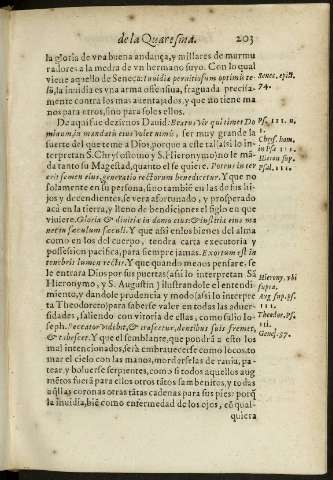 de la Quaresma. 203
la gloria de vna buena andança, y millares de murmu
radores a la medra de vn hermano suyo. Con lo qual
viene aquello de Seneca: Inuidia pernitiosum optimis te-
lũ, la inuidia es vna arma ofensiua, fraguada precisa-
mente contra los mas auentajados, y que no tiene ma
nos para otros, sino para solos ellos.
Senec. epist.
74.
De aqui fue dezirnos Dauid: Beatus vir qui timet Do
minum, in mandatis eius volet nimis, ser muy grande la
suerte del que teme a Dios, porque a este tal (assi lo in-
terpretan S. Chrysostomo y S. Hieronymo) no le mã
da tanto su Magestad, quanto el se quiere. Potens in ter
ra erit semen eius, generatio rectorum benedicetur. Y que no
Ps. 111. n.
1.
Chrys. hom.
in Psa 111.
Hieron sup.
Psal. 111.
solamente en su persona, sino tambiẽ en las de sus hi-
jos y decendientes, se vera afortunado, y prosperado
acá en la tierra, y lleno de bendiciones el siglo en que
viuiere. Gloria & diuitiæ in domo eius: & iustitia eius ma
net in sæculum sæculi. Y que assi en los bienes del alma
como en los del cuerpo, tendra carta executoria y
possession pacifica, para siempre jamas. Exortum est in
tenebris lumen rectis. Y que quando menos pensare, se
le entrara Dios por sus puertas (assi lo interpretan Sã
Hieronymo, y S. Augustin) ilustrandole el entendi-
miento, y dandole prudencia y modo (assi lo interpre
ta Theodoreto) para saberse valer en todas las aduer-
sidades, saliendo con vitoria de ellas, como salio Io-
seph. Peccator videbit, & irascetur, dentibus suis fremet,
& tabescet. Y que el semblante, que pondrá a esto los
Hierony. vbi
supra.
Aug sup. ps.
111.
Theodor. ps.
111.
Genes. 37.
mal intencionados, será embrauecerse como locos, to
mar el cielo con las manos, morderselas de rauia, pa-
tear, y boluerse serpientes, como si todos aquellos aug
mẽtos fuerã para ellos otros tãtos sambenitos, y todas
aq̃llas coronas otras tãtas cadenas para sus pies: porq̃
la inuidia, biẽ como enfermedad de los ojos, cõ qual-
quiera